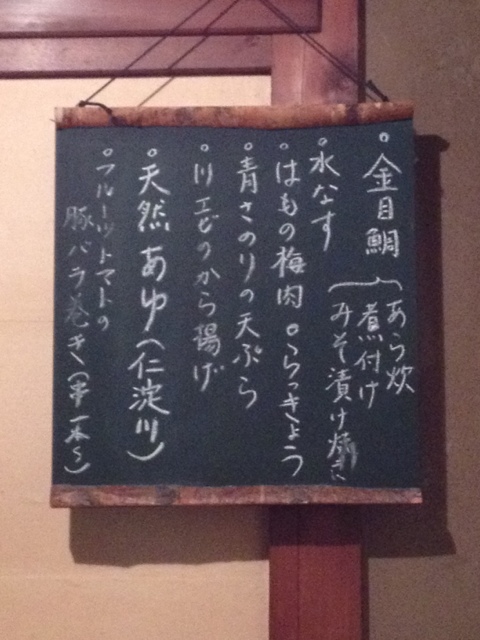 ○金目鯛
あら炊
煮付け
みそ漬け焼き
○水なす
○はもの梅肉 ○らっきょう
○青さのりの天ぷら
○川エビのから揚げ
○天然あゆ(仁淀川)
○フルーツトマトの
豚バラ巻き(串一本〜)